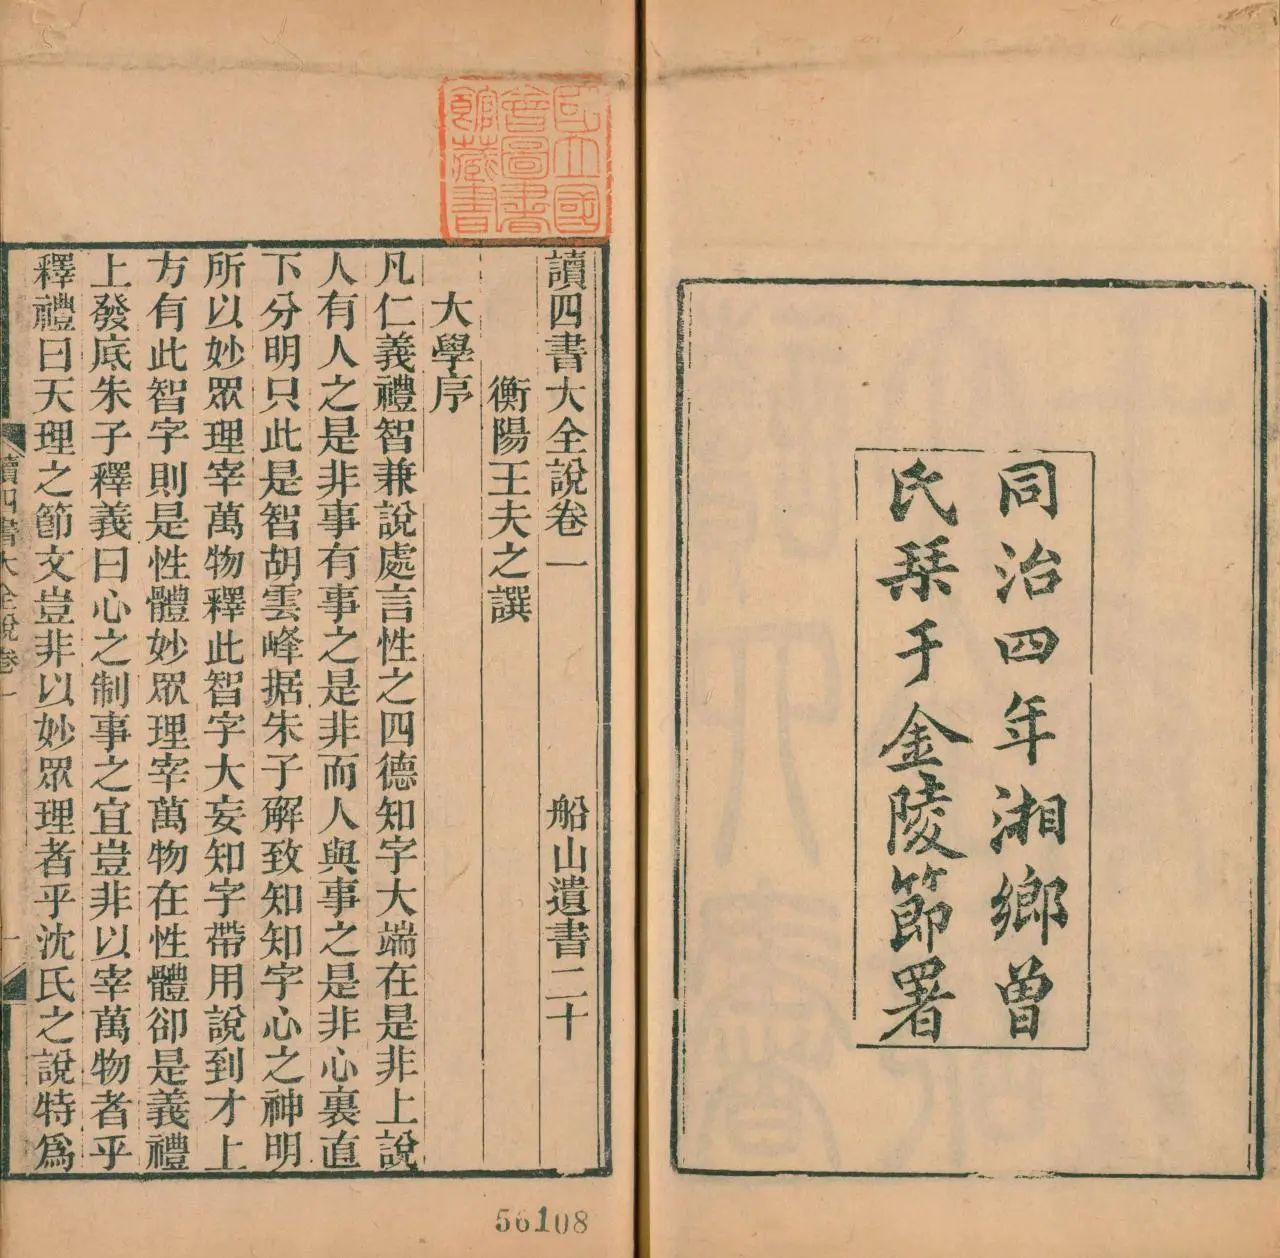 同治四年湘鄉曾
氏栞于金陵節署
國立國
會圖書
館藏書
讀四書大全說卷一 船山遺書二十
衡陽王夫之譔
大學序
凡仁義禮智兼說處言性之四德知字大端在是非上說
人有人之是非事有事之是非而人與事之是非心裏直
下分明只此是智胡雲峰据朱子解致知知字心之神明
所以妙眾理宰萬物釋此智字大妄知字帶用說到才上
方有此智字則是性體妙眾理宰萬物在性體卻是義禮
上發底朱子釋義曰心之制事之宜豈非以宰萬物者乎
釋禮曰天理之節文豈非以妙眾理者乎沈氏之說特為
讀四書大全說卷一
一
56108